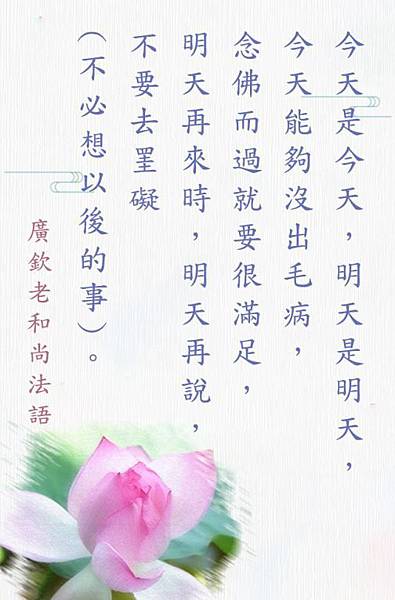 今天是今天，明天是明天，
今天能夠沒出毛病，
念佛而過就要很滿足，
明天再來時，明天再說，
不要去罣礙
（不必想以後的事）。
廣欽老和尚法語